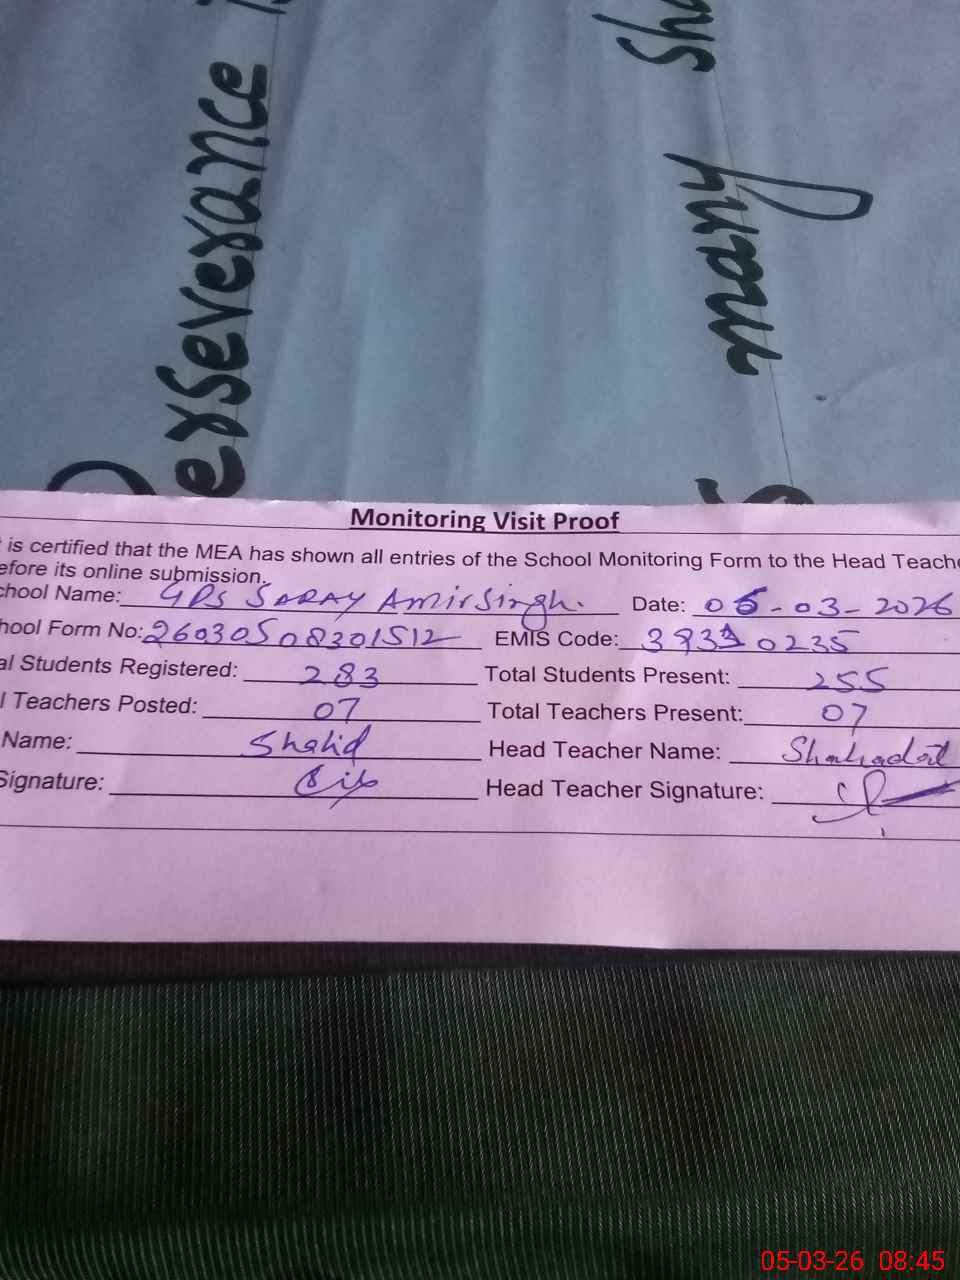 erseverance
shy
huram
Monitoring Visit Proof
is certified that the MEA has shown all entries of the School Monitoring Form to the Head Teache
efore its online submission.
chool Name: GPS SARAY Amir Singh. Date: 05-03-2026
hool Form No: 26030508301512 EMIS Code: 0235
al Students Registered: 283 Total Students Present: 255
l Teachers Posted: 07 Total Teachers Present: 07
Name: Shahid Head Teacher Name: Shahadat
Signature: Head Teacher Signature:
05-03-26 08:45